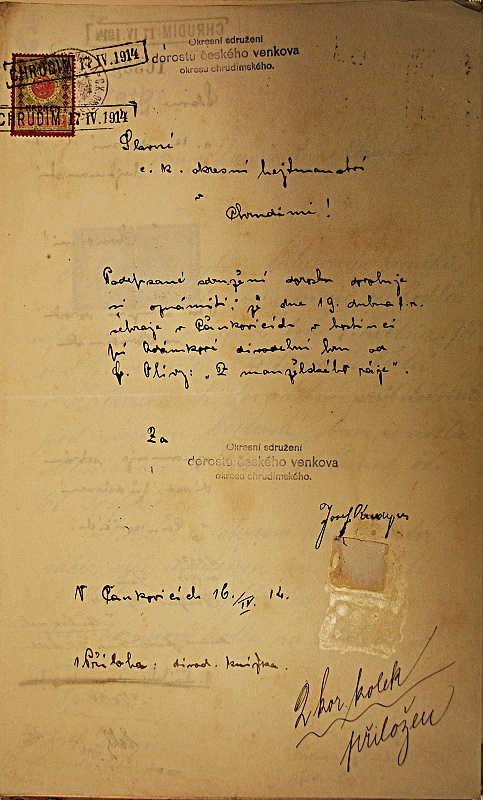 CHRUDIM 17 IV.1914
CHRUDIM 17 IV.1914
Okresní sdružení
dorostu českého venkova
okresu chrudimského.
Slavné
c. k. okresní hejtmanství
v
Chrudimi!
Podepsané sdružení dorostu dovoluje
si oznámiti, že dne 19. dubna t. r.
sehraje v Čankovicích v hostinci
divadelní hru od
"Z manželského ráje".
Za
Okresní sdružení
dorostu českého venkova
okresu chrudimského.
Josef
V Čankovicích 16./IV. 14.
1 Příloha: divad. knížka.
2 kor. kolek
přiložen